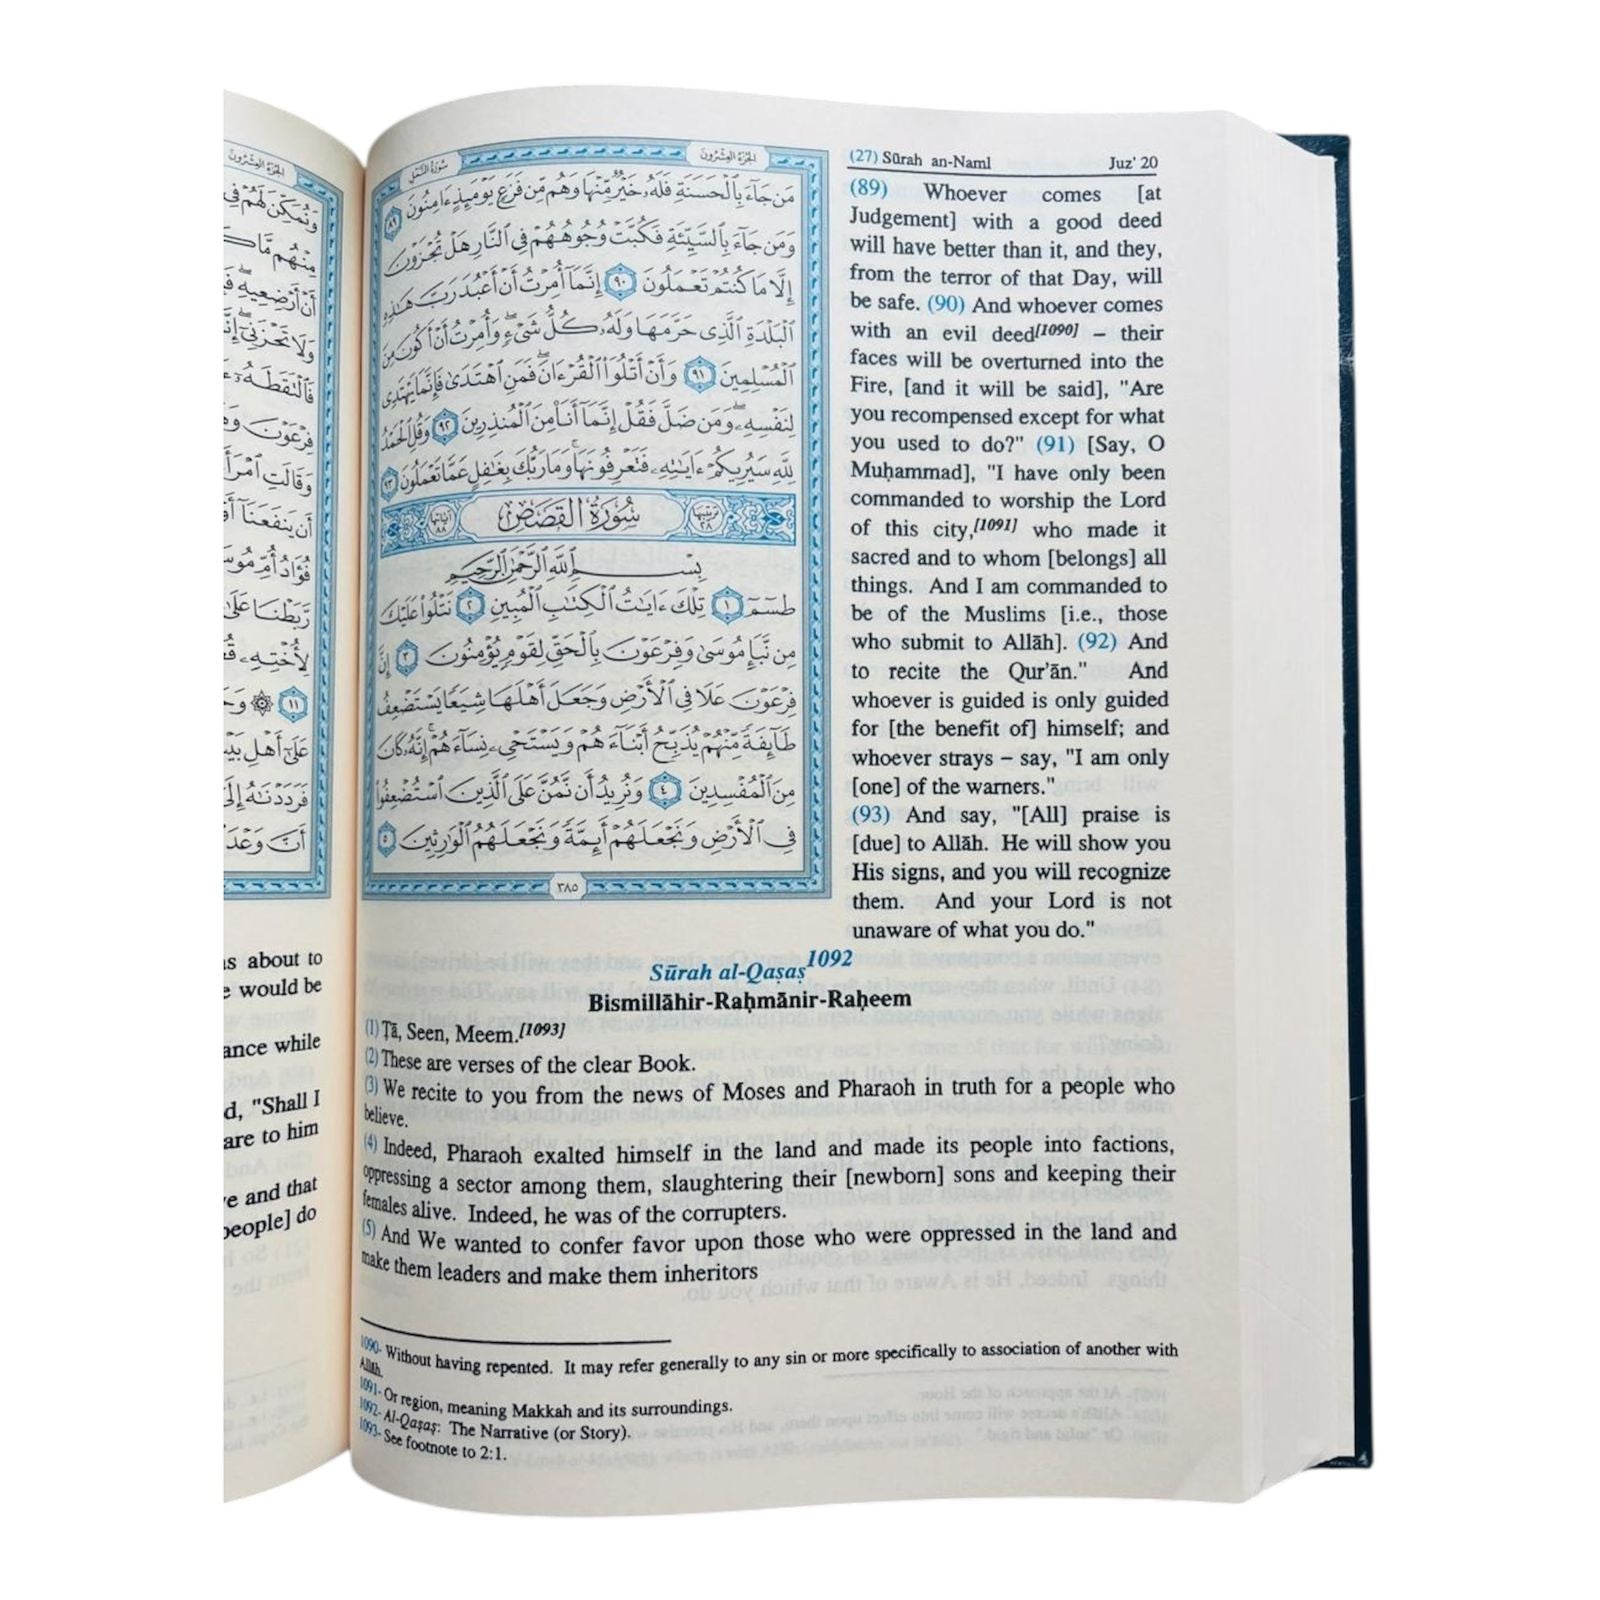 الجزء العشرون
وَنُمَكِّنَ لَهُمْ فِي
مِنْهُم مَّا
أَنْ أَرْضِعِيهِ
وَلَا تَحْزَنِي
فَالْتَقَطَهُ
فِرْعَوْنَ
وَقَالَتِ
أَن يَنفَعَنَا
فُؤَادُ أُمِّ
رَبَطْنَا عَلَى
لِأُخْتِهِ
١١
عَلَىٰ أَهْلِ
فَرَدَدْنَاهُ
أَنَّ
as about to
would be
ance while
d, "Shall I
are to him
e and that
people] do
سورة النمل
الجزء العشرون
مَن جَاءَ بِالْحَسَنَةِ فَلَهُ خَيْرٌ مِّنْهَا وَهُم مِّن فَزَعٍ يَوْمَئِذٍ ءَامِنُونَ ٨٩
وَمَن جَاءَ بِالسَّيِّئَةِ فَكُبَّتْ وُجُوهُهُمْ فِي النَّارِ هَلْ تُجْزَوْنَ
إِلَّا مَا كُنتُمْ تَعْمَلُونَ ٩٠ إِنَّمَا أُمِرْتُ أَنْ أَعْبُدَ رَبَّ هَٰذِهِ
الْبَلْدَةِ الَّذِي حَرَّمَهَا وَلَهُ كُلُّ شَيْءٍ وَأُمِرْتُ أَنْ أَكُونَ مِنَ
الْمُسْلِمِينَ ٩١ وَأَنْ أَتْلُوَا الْقُرْءَانَ فَمَنِ اهْتَدَىٰ فَإِنَّمَا يَهْتَدِي
لِنَفْسِهِ وَمَن ضَلَّ فَقُلْ إِنَّمَا أَنَا مِنَ الْمُنذِرِينَ ٩٢ وَقُلِ الْحَمْدُ
لِلَّهِ سَيُرِيكُمْ ءَايَاتِهِ فَتَعْرِفُونَهَا وَمَا رَبُّكَ بِغَافِلٍ عَمَّا تَعْمَلُونَ ٩٣
ترتيبها ٢٨ سُورَةُ الْقَصَصِ آياتها ٨٨
بِسْمِ اللَّهِ الرَّحْمَٰنِ الرَّحِيمِ
طسٓمٓ ١ تِلْكَ ءَايَاتُ الْكِتَابِ الْمُبِينِ ٢ نَتْلُوا عَلَيْكَ
مِن نَّبَإِ مُوسَىٰ وَفِرْعَوْنَ بِالْحَقِّ لِقَوْمٍ يُؤْمِنُونَ ٣ إِنَّ
فِرْعَوْنَ عَلَا فِي الْأَرْضِ وَجَعَلَ أَهْلَهَا شِيَعًا يَسْتَضْعِفُ
طَائِفَةً مِّنْهُمْ يُذَبِّحُ أَبْنَاءَهُمْ وَيَسْتَحْيِ نِسَاءَهُمْ إِنَّهُ كَانَ
مِنَ الْمُفْسِدِينَ ٤ وَنُرِيدُ أَن نَّمُنَّ عَلَى الَّذِينَ اسْتُضْعِفُوا
فِي الْأَرْضِ وَنَجْعَلَهُمْ أَئِمَّةً وَنَجْعَلَهُمُ الْوَارِثِينَ ٥
٣٨٥
(27) Sūrah an-Naml Juz' 20
(89) Whoever comes [at
Judgement] with a good deed
will have better than it, and they,
from the terror of that Day, will
be safe. (90) And whoever comes
with an evil deed[1090] – their
faces will be overturned into the
Fire, [and it will be said], "Are
you recompensed except for what
you used to do?" (91) [Say, O
Muḥammad], "I have only been
commanded to worship the Lord
of this city,[1091] who made it
sacred and to whom [belongs] all
things. And I am commanded to
be of the Muslims [i.e., those
who submit to Allāh]. (92) And
to recite the Qur'ān." And
whoever is guided is only guided
for [the benefit of] himself; and
whoever strays – say, "I am only
[one] of the warners."
(93) And say, "[All] praise is
[due] to Allāh. He will show you
His signs, and you will recognize
them. And your Lord is not
unaware of what you do."
Sūrah al-Qaṣaṣ1092
Bismillāhir-Raḥmānir-Raḥeem
(1) Ṭā, Seen, Meem.[1093]
(2) These are verses of the clear Book.
(3) We recite to you from the news of Moses and Pharaoh in truth for a people who
believe.
(4) Indeed, Pharaoh exalted himself in the land and made its people into factions,
oppressing a sector among them, slaughtering their [newborn] sons and keeping their
females alive. Indeed, he was of the corrupters.
(5) And We wanted to confer favor upon those who were oppressed in the land and
make them leaders and make them inheritors
1090- Without having repented. It may refer generally to any sin or more specifically to association of another with
Allāh.
1091- Or region, meaning Makkah and its surroundings.
1092- Al-Qaṣaṣ: The Narrative (or Story).
1093- See footnote to 2:1.